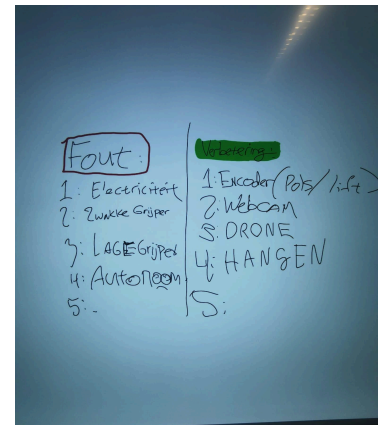 Fout:
1: Electriciteit
2: Zwakke Grijper
3: LAGE Grijper
4: Autonoom
5: -
Verbetering:
1: Encoder (Pols/lift)
2: Webcam
3: DRONE
4: HANGEN
5: